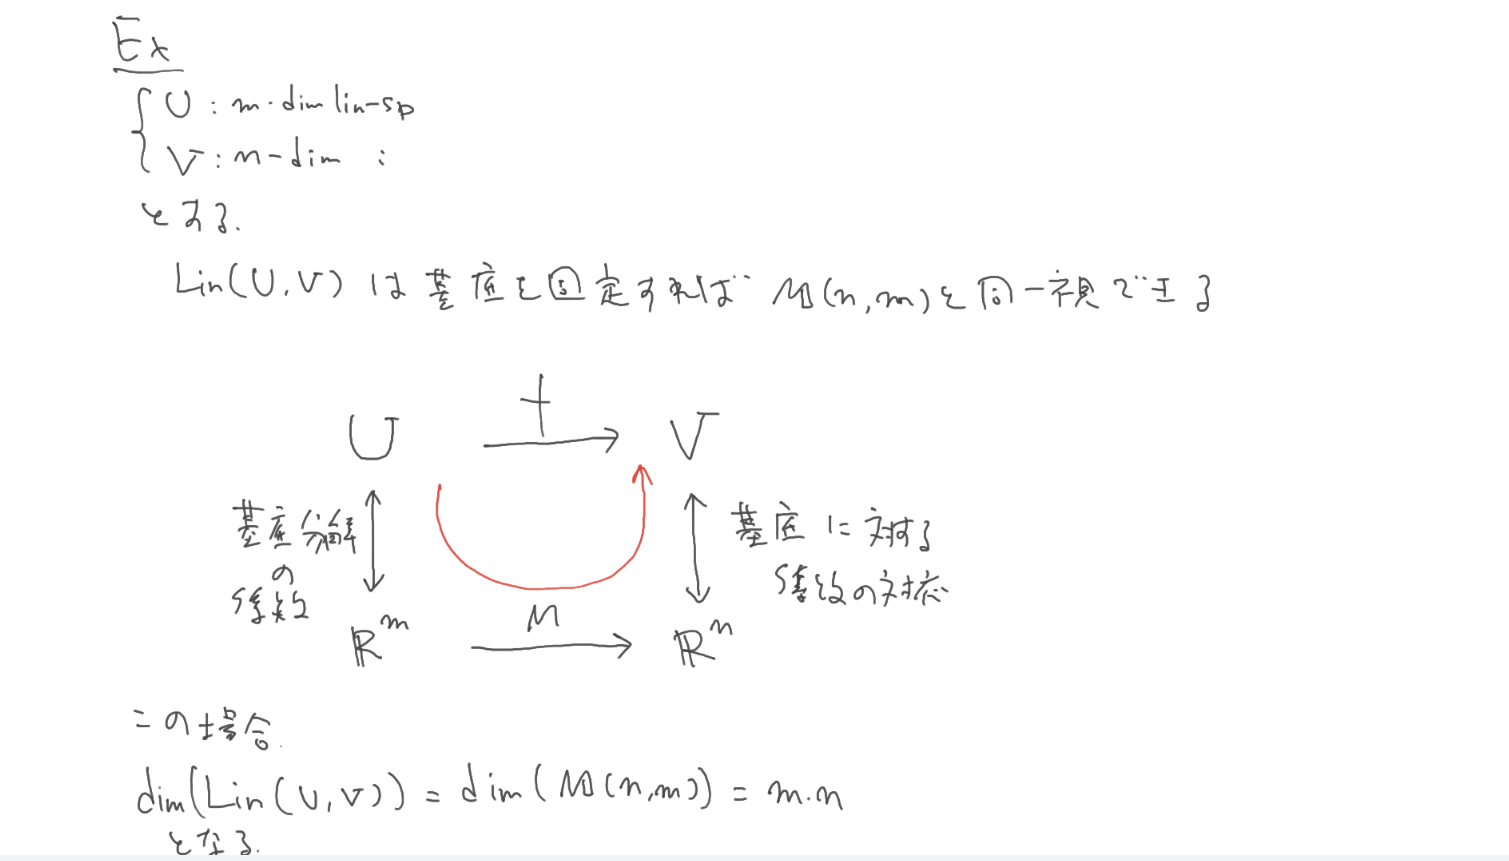 Ex
U : m-dim lin-sp
V : n-dim :
とする.
Lin(U,V) は基底を固定すれば M(n,m)と同一視できる
f
U → V
基底分解
の
係数
基底に対する
係数の対応
M
ℝᵐ → ℝⁿ
この場合.
dim(Lin(U,V)) = dim(M(n,m)) = m・n
となる.